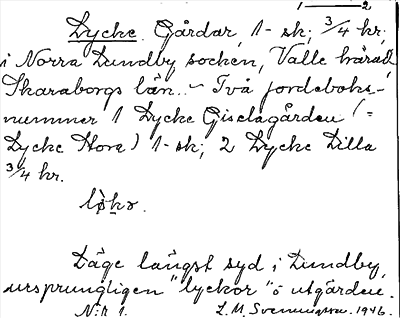 1 — 2
Lycke. Gårdar, 1- sk; 3/4 kr.
i Norra Lundby socken, Valle härad
Skaraborgs län. - Två jordeboks-
nummer 1 Lycke Giselagården (=
Lycke Stora) 1- sk; 2 Lycke Lilla
3/4 kr.
Läge längst syd i Lundby,
ursprungligen "lyckor" o utgärden.
N:r 1. L. M. Svenungsson. 1946.